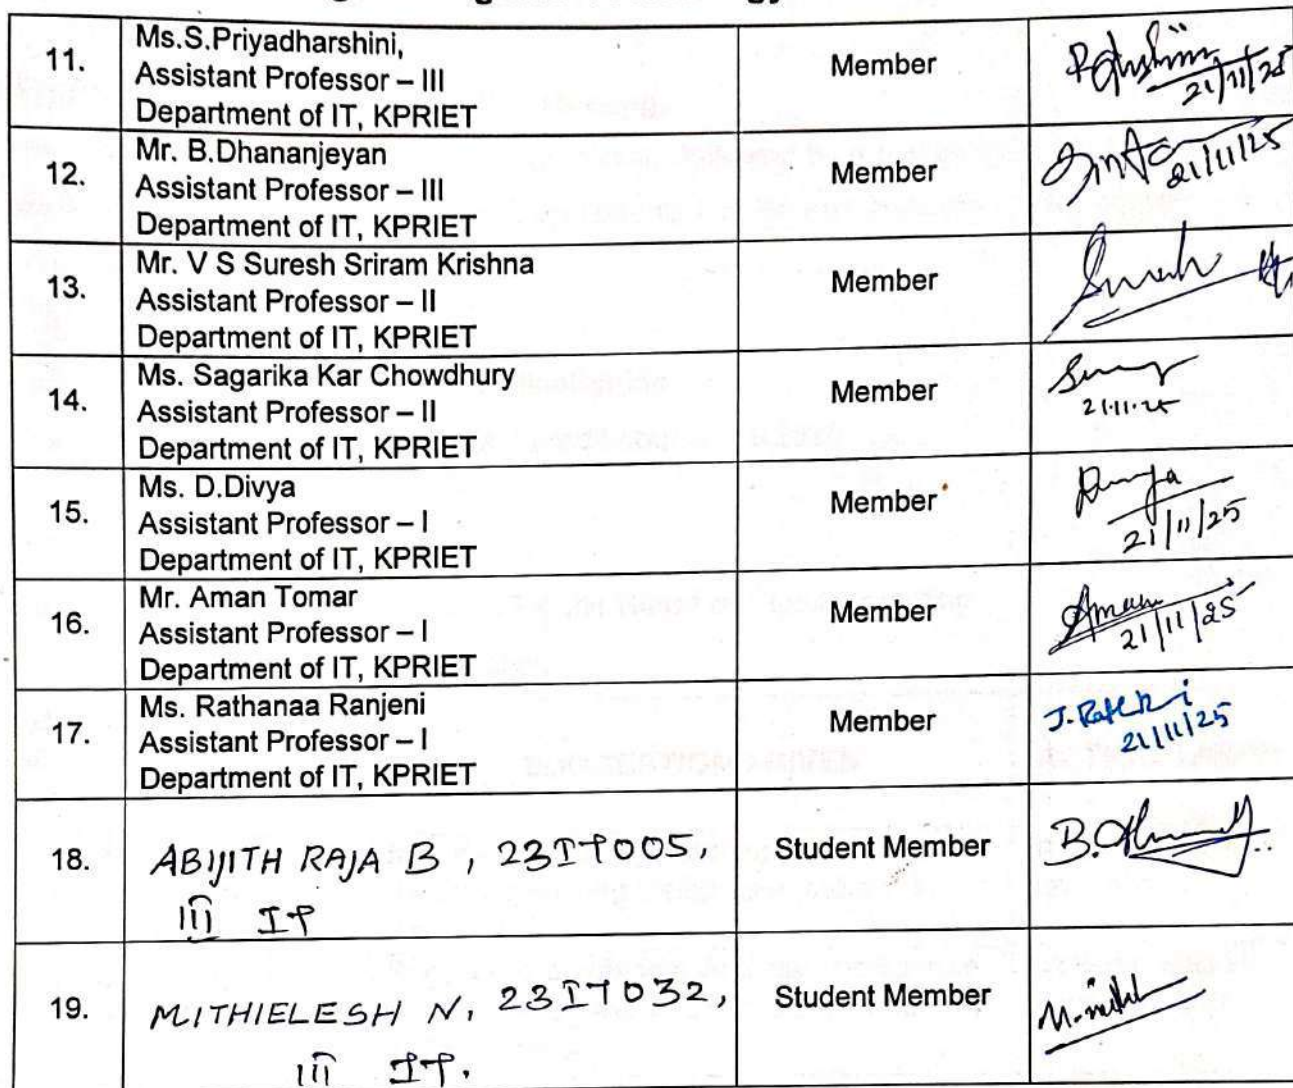 11.
Ms.S.Priyadharshini,
Assistant Professor – III
Department of IT, KPRIET
Member
21/11/25
12.
Mr. B.Dhananjeyan
Assistant Professor – III
Department of IT, KPRIET
Member
21/11/25
13.
Mr. V S Suresh Sriram Krishna
Assistant Professor – II
Department of IT, KPRIET
Member
14.
Ms. Sagarika Kar Chowdhury
Assistant Professor – II
Department of IT, KPRIET
Member
21.11.25
15.
Ms. D.Divya
Assistant Professor – I
Department of IT, KPRIET
Member
21/11/25
16.
Mr. Aman Tomar
Assistant Professor – I
Department of IT, KPRIET
Member
Aman
21/11/25
17.
Ms. Rathanaa Ranjeni
Assistant Professor – I
Department of IT, KPRIET
Member
21/11/25
18.
ABIJITH RAJA B, 23IT005,
III IT
Student Member
19.
MITHIELESH N, 23IT032,
III IT.
Student Member